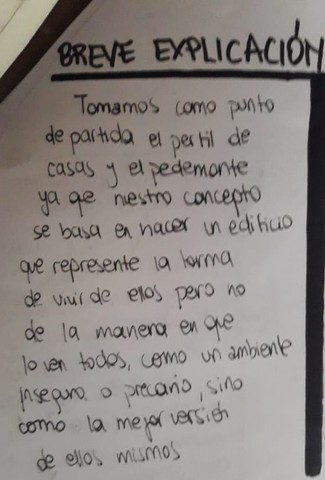 BREVE EXPLICACIÓN
Tomamos como punto
de partida el perfil de
casas y el pedemonte
ya qe nuestro concepto
se basa en hacer un edificio
que represente la forma
de vivir de ellos pero no
de la manera en que
lo ven todos, como un ambiente
inseguro o precario, sino
como la mejor versión
de ellos mismos